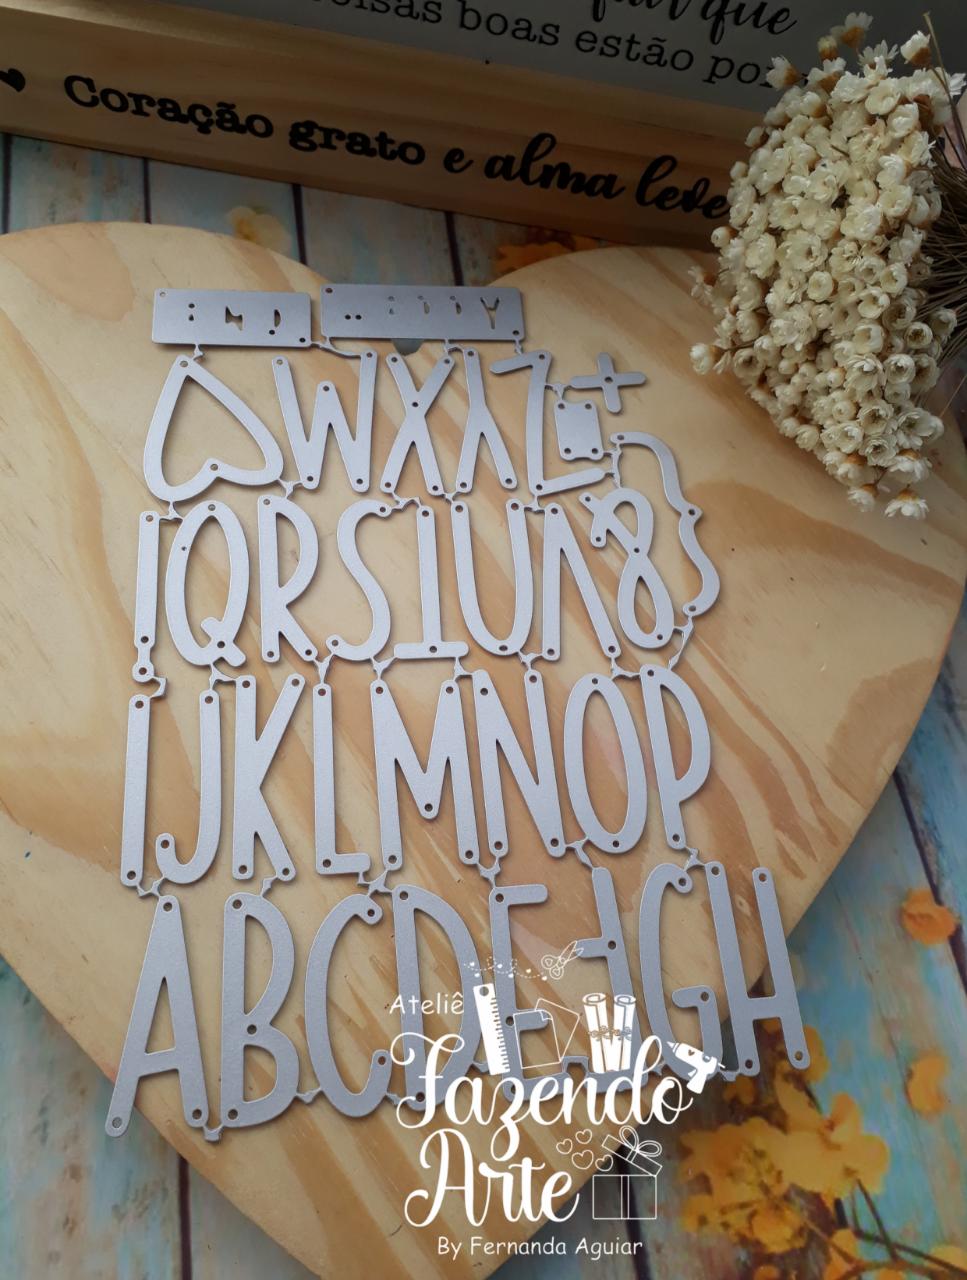 que
coisas boas estão
Coração grato e alma leve
WXYZ+
QRSTUV&
IJKLMNOP
ABCDEFGH
Ateliê
Fazendo
Arte
By Fernanda Aguiar